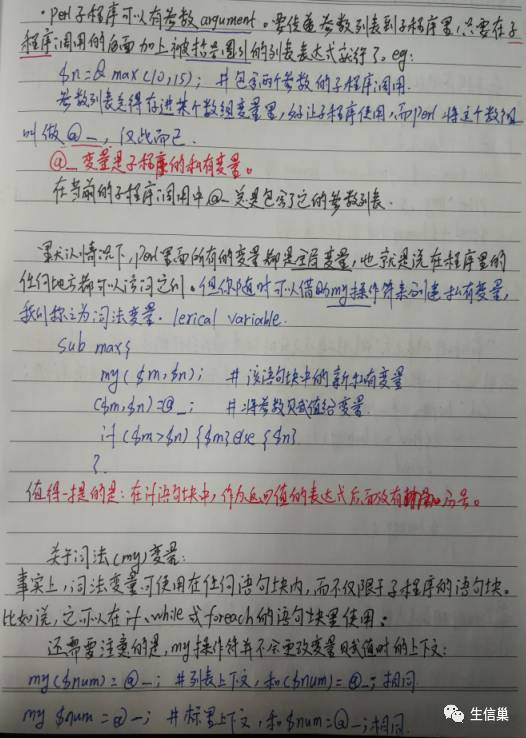 ·Perl子程序可以有参数argument。要传递参数列表到子程序里,只要在子
程序调用的后面加上被括号圈引的列表表达式就行了。eg:
$n=& max(10,15); #包含两个参数的子程序调用.
参数列表总得存进某个数组变量里,好让子程序使用,而perl将这个数组
叫做@_,仅此而已.
@_变量是子程序的私有变量。
在当前的子程序调用中@_总是包含了它的参数列表.
默认情况下,Perl里面所有的变量都是全局变量,也就是说在程序里的
任何地方都可以访问它们。但你随时可以借助my操作符来创建私有变量,
我们称之为词法变量. lexical variable.
sub max{
my($m,$n); #该语句块中的新私有变量
($m,$n)=@_; #将参数赋值给变量
if($m>$n){$m}else{$n}
}.
值得一提的是:在if语句块中,作为返回值的表达式后面没有分号。
关于词法(my)变量:
事实上,词法变量可使用在任何语句块内,而不仅限于子程序的语句块。
比如说,它可以在if、while或foreach的语句块里使用:
还需要注意的是,my操作符并不会更改变量赋值时的上下文:
my($num)=@_; #列表上下文,和($num)=@_;相同
my $num=@_; #标量上下文,和$num=@_;相同.
生信巢